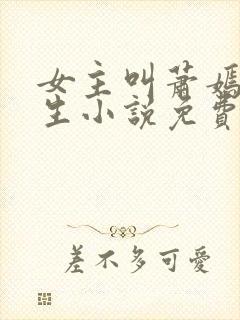 女主叫蕭嫣
生小說免費
差不多可愛